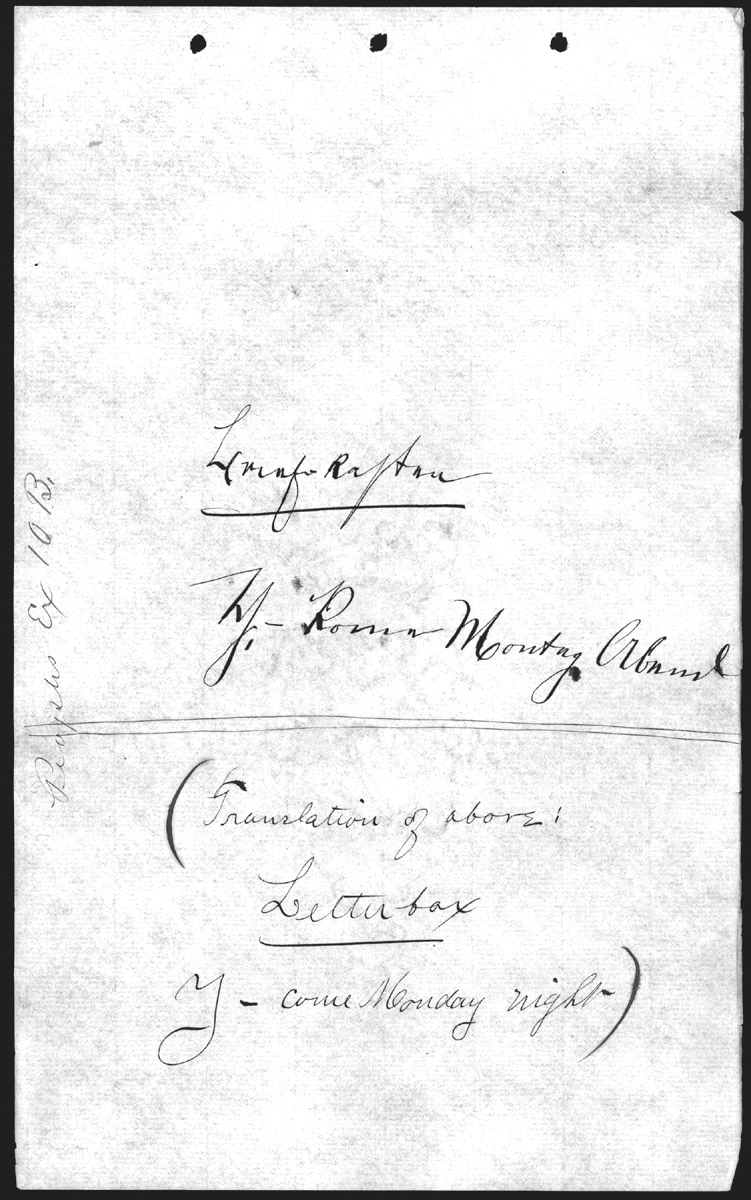 Briefkasten
Y,- Komme Montag Abend
Peoples Ex 10 B.
(Translation of above:
Letterbox
Y - come Monday night)